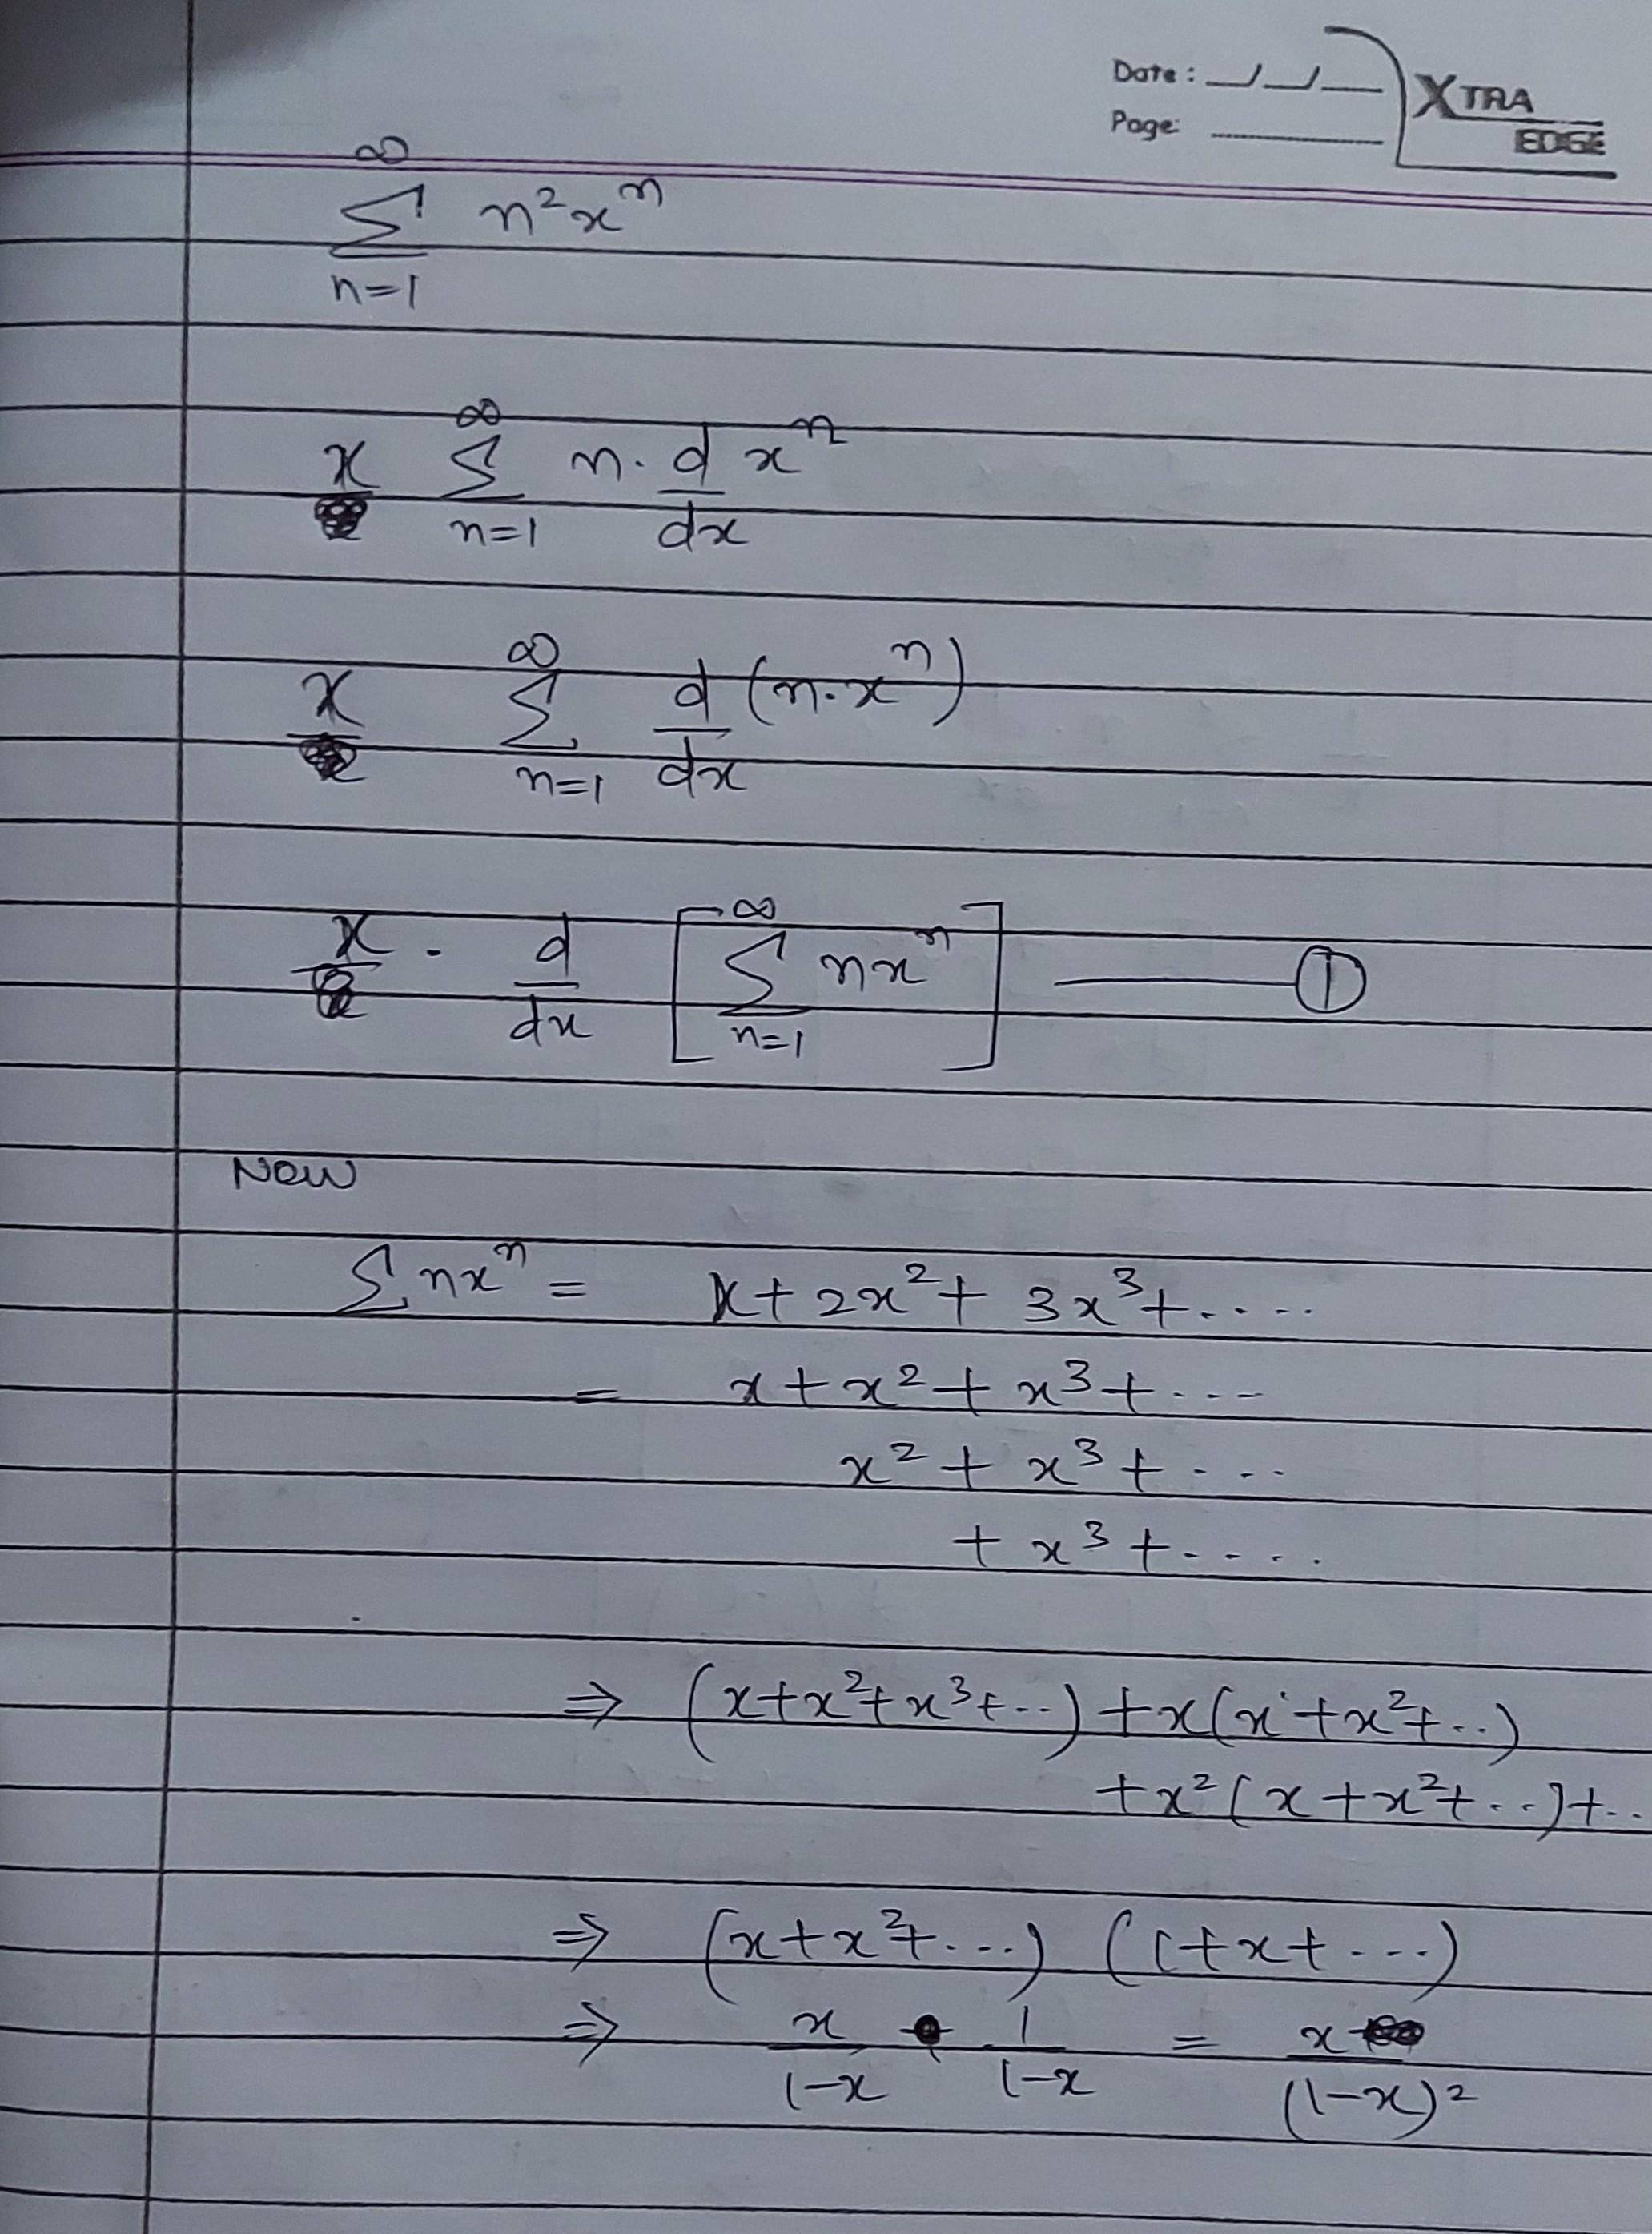 Date : __/__/__ XTRA EDGE
Page: ..........
∞
Σ n²xⁿ
n=1
∞
x Σ n. d/dx xⁿ
n=1
∞
x Σ d/dx (n.xⁿ)
n=1
x . d/dx [∞ Σ n=1 nxⁿ] ——— ①
Now
Σ nxⁿ = x + 2x² + 3x³ + .....
= x + x² + x³ + ....
x² + x³ + ....
+ x³ + .....
⇒ (x+x²+x³+..) + x(x+x²+..)
+x²(x+x²+..)+..
⇒ (x+x²+....) (1+x+....)
⇒ x/(1-x) · 1/(1-x) = x/(1-x)²